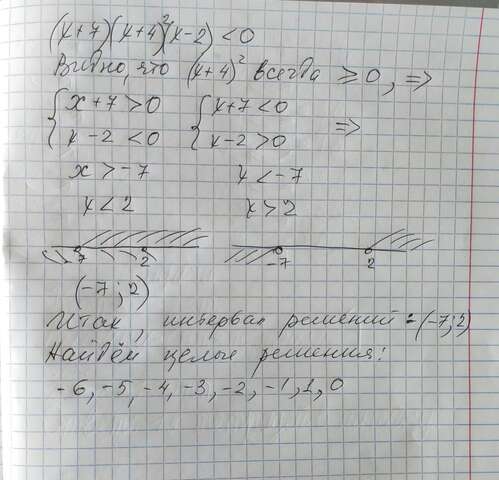 (x+7)(x+4)²(x-2) < 0
Видно, что (x+4)² всегда ≥ 0, =>
{ x+7 > 0 { x+7 < 0
x-2 < 0 x-2 > 0 =>
x > -7 x < -7
x < 2 x > 2
-7 2 -7 2
(-7; 2)
Итак, интервал решений = (-7; 2)
Найдём целые решения:
-6, -5, -4, -3, -2, -1, 1, 0